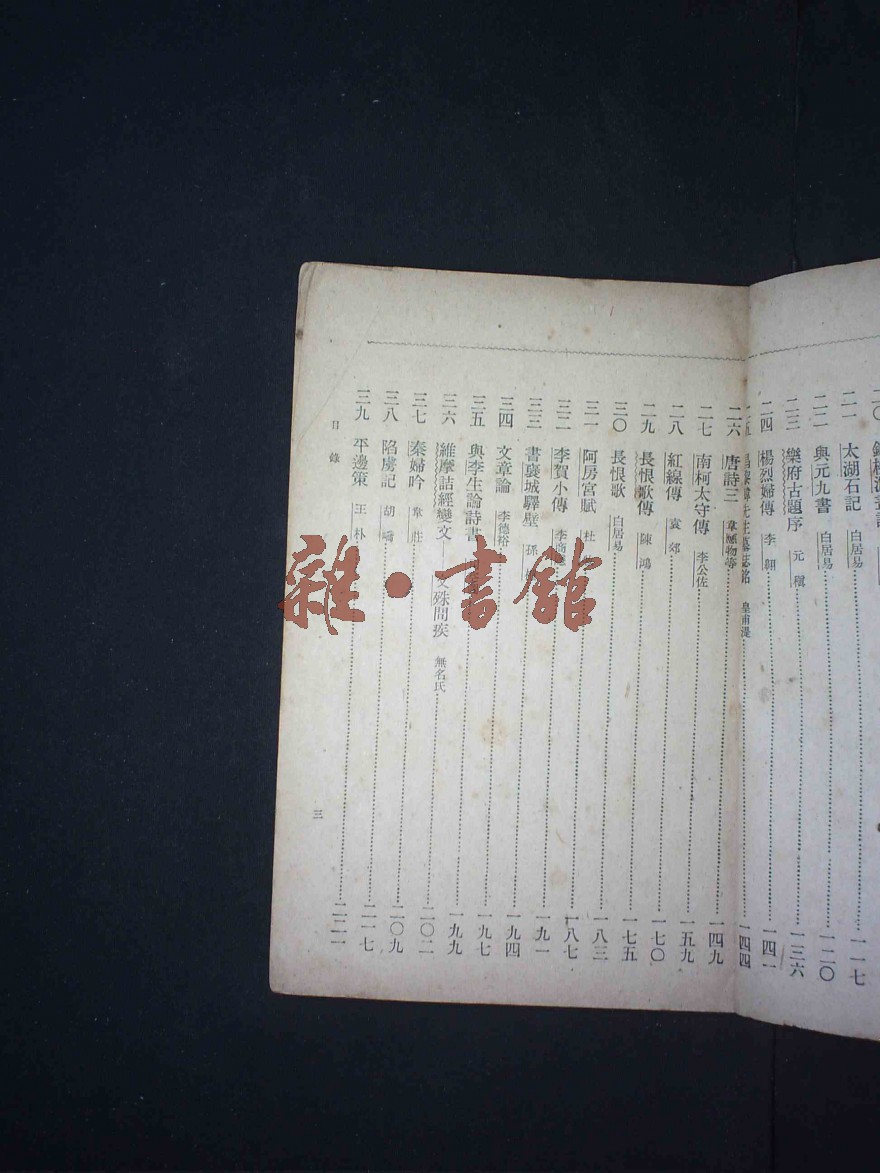 二一 太湖石記 白居易……一一七
二二 與元九書 白居易……一二〇
二三 樂府古題序 元稹……一三六
二四 楊烈婦傳 李翺……一四一
先生墓誌銘 皇甫湜……一四四
二六 唐詩三 韋應物等……一四九
二七 南柯太守傳 李公佐……一五九
二八 紅線傳 袁郊……一七〇
二九 長恨歌傳 陳鴻……一七五
三〇 長恨歌 白居易……一八三
三一 阿房宮賦 杜……一八七
三二 李賀小傳 李商……一九一
三三 書襃城驛壁 孫……一九四
三四 文章論 李德裕……一九七
三五 與李生論詩書……一九九
三六 維摩詰經變文——文殊問疾 無名氏……二〇二
三七 秦婦吟 韋莊……二〇九
三八 陷虜記 胡嶠……二一七
三九 平邊策 王朴……二二一
目錄
三
雜·書館